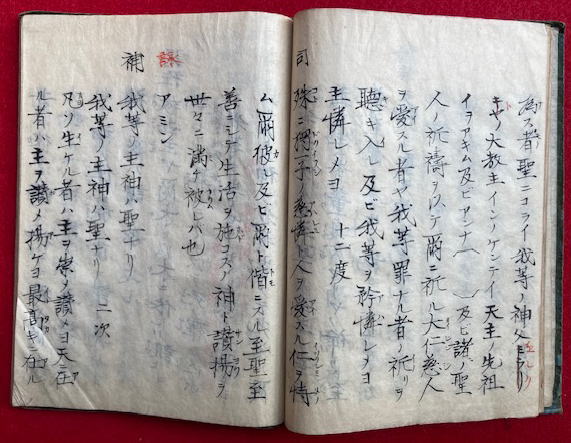 為ス者聖ニコライ我等ノ神父
キヤノ大教主インノケンティ天主ノ先祖
イヲアキム及ビアンナ 及ビ諸ノ聖
人ノ祈禱ヲ以テ爾ニ祈ル大仁慈人
ヲ愛スル者ヤ我等罪ナル者ノ祈リヲ
聴キ入レ及ビ我等ヲ矜憐レメヨ
主憐レメヨ 十二度
司 殊ニ 子ノ慈憐ト人ヲ愛スル仁ヲ恃
ム爾彼ル及ビ爾ト偕ニスル至聖至
善ニシテ生活ヲ施コスノ神ト讃揚ヲ
世々ニ満チ被レバ也
詠 アミン
補 我等ノ主神ハ聖ナリ
我等ノ主神ハ聖ナリ 二次
凡ソ生ケル者ハ主ヲ崇メ讃メヨ天ニ在
ル者ハ主ヲ讃メ揚ケヨ最高キニ在ル